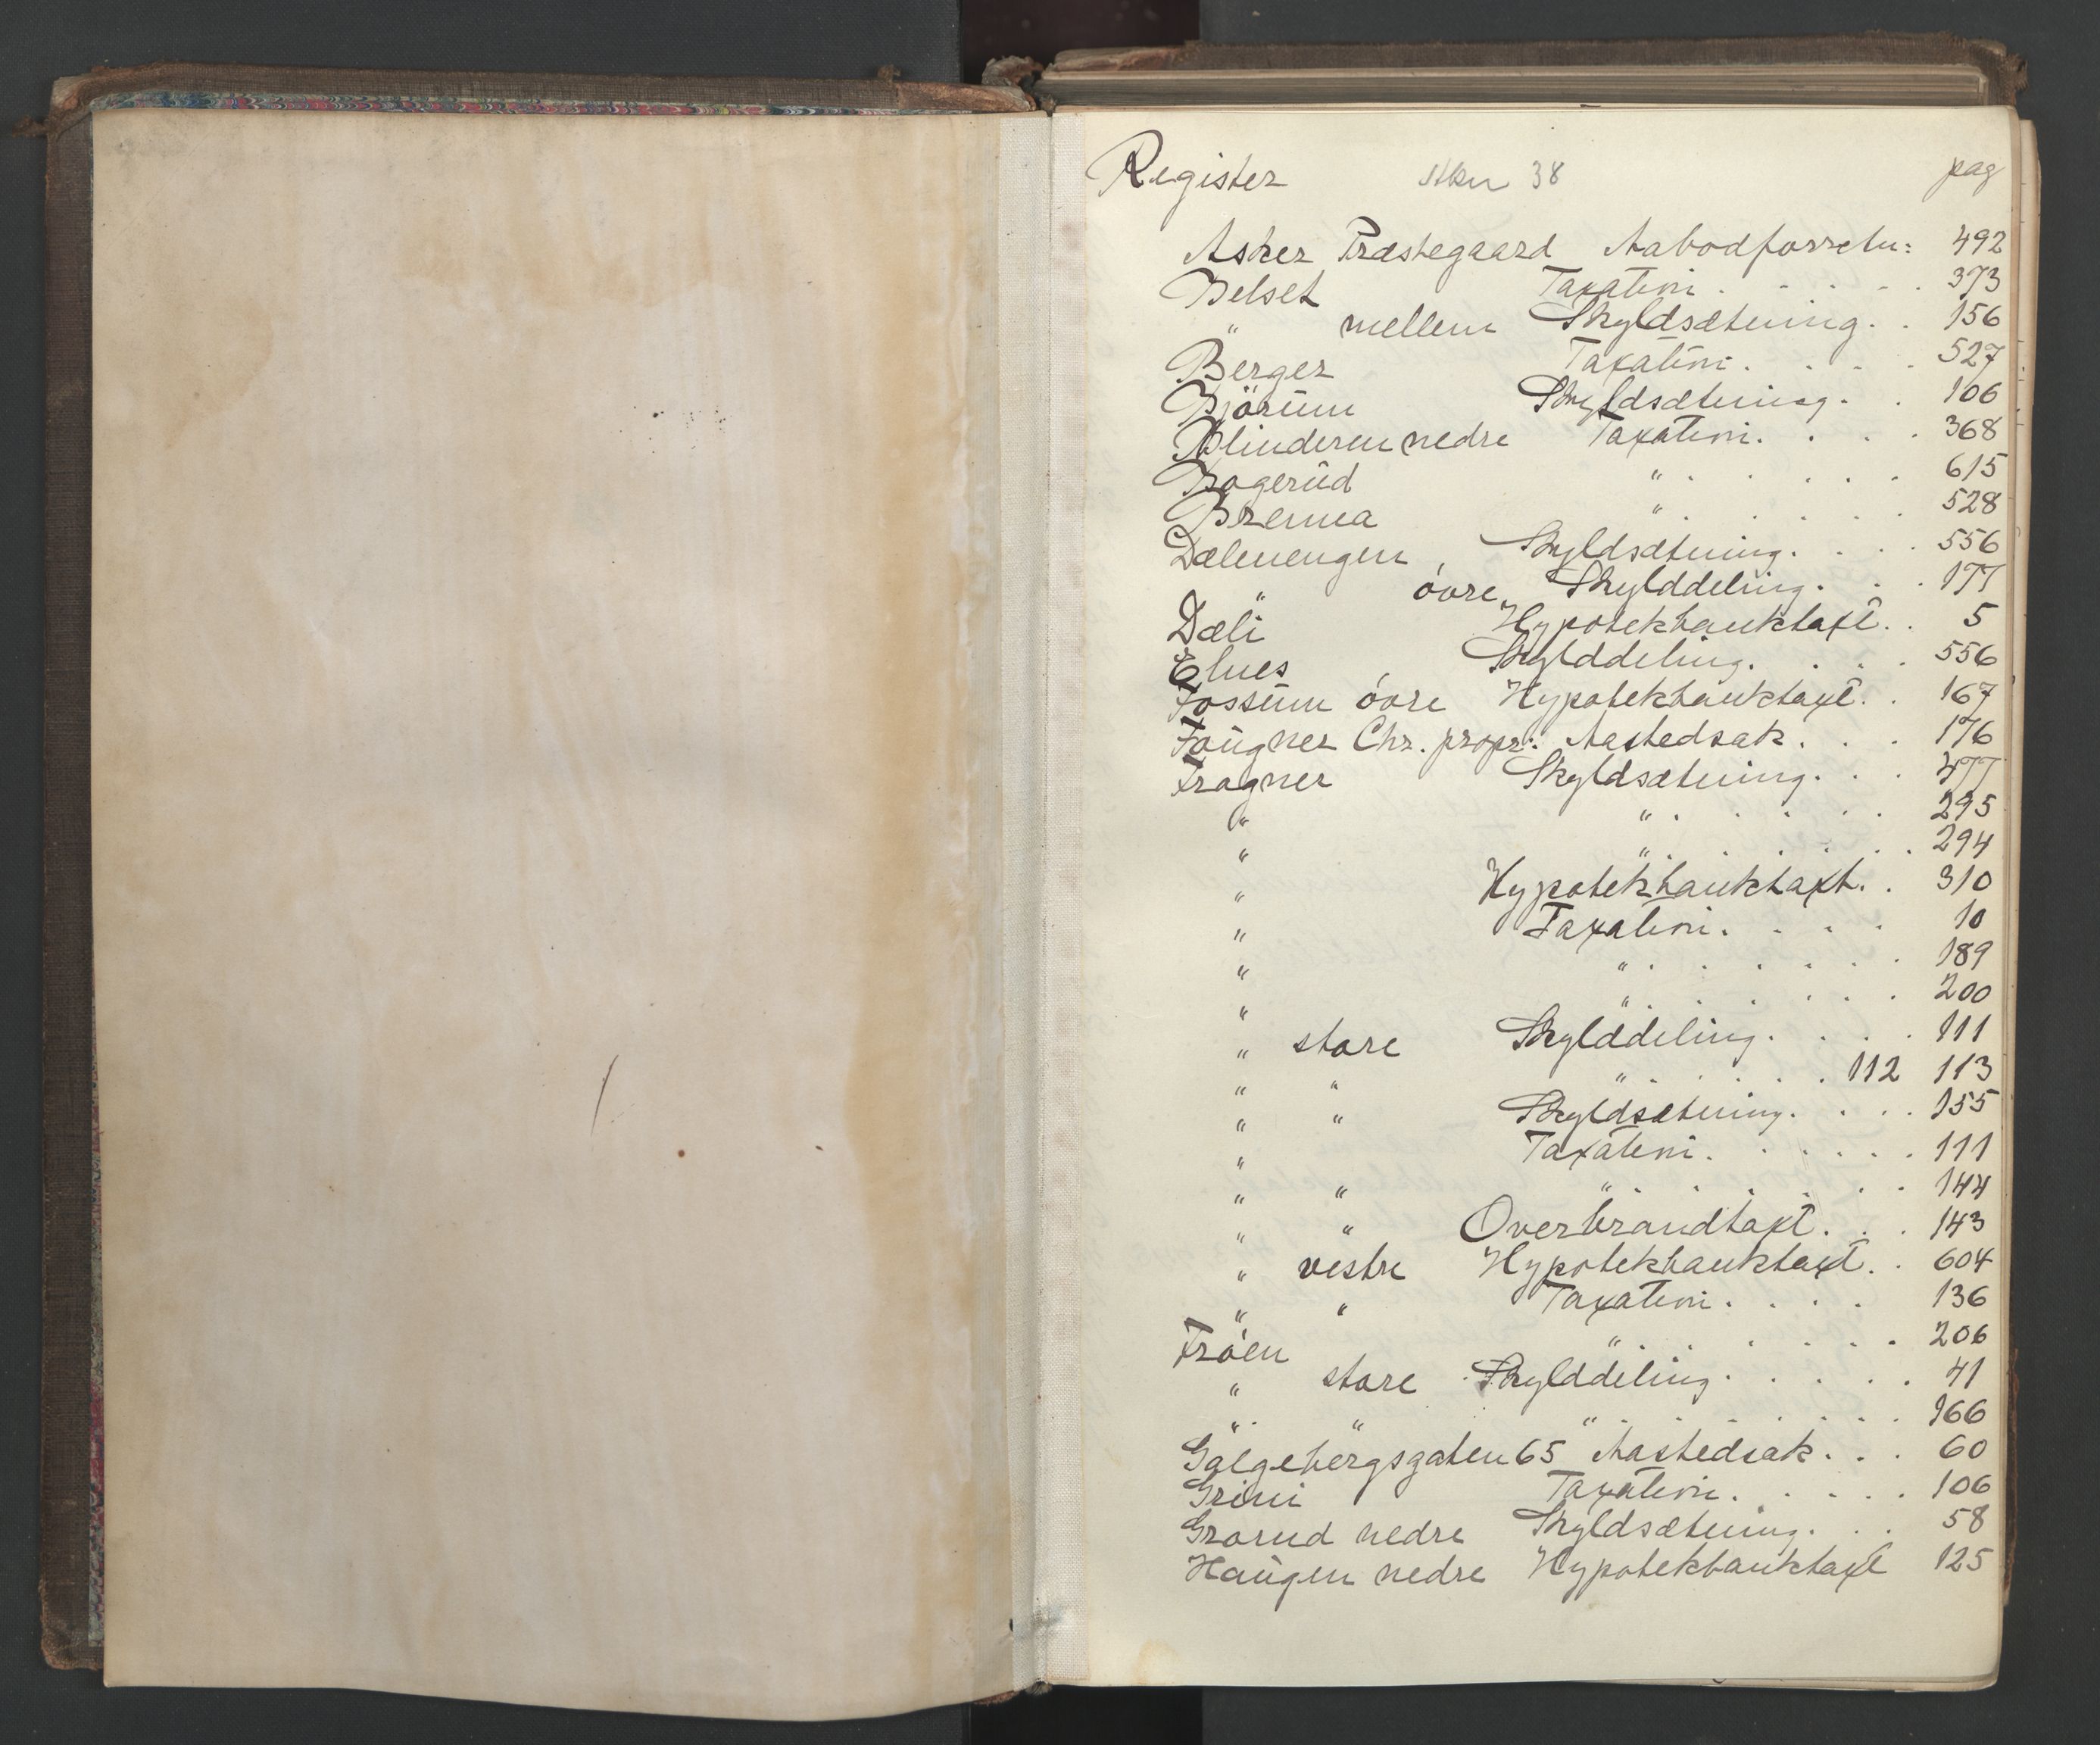 Register 38 pag
Asker Præstegaard Aabodforretn: 492
Belset Taxation . . . . . 373
" mellem Skyldsætning . . 156
Berger Taxation . . . . 527
Bjørum Skyldsætning . . 106
Blinderen nedre Taxation . . . . 368
Bogerud " . . . . . 615
Brenna " . . . . . 528
Dælenengen Skyldsætning . . . . 556
" óvre Skylddeling . . . 177
Dæli Hypotekbanktaxt . . 5
Elnes Skylddeling . . . . 556
Fossum óvre Hypotekbanktaxt . . 167
Fougner Chr. propr: Aastedsak . . . 176
Frogner Skyldsætning . . . 477
" " . . . . . 295
" " . . . . . 294
" Hypotekbanktaxt . . 310
" Taxation . . . . 10
" " . . . . . . 189
" " . . . . . . 200
" store Skylddeling . . . . 111
" " " . . . . . 112 113
" " Skyldsætning . . . . 155
" Taxation . . . . . . 111
" " " . . . . . . 144
" " Overbrandtaxt . . . 143
" vestre Hypotekbanktaxt . . 604
" " Taxation . . . . 136
Fróen " . . . . . . 206
" store Skylddeling . . . . . 41
" " " . . . . . . 166
Galgebergsgaten 65 Aastedsak . . . 60
Grini Taxation . . . . . 106
Grorud nedre Skyldsætning . . . 58
Haugen nedre Hypotekbanktaxt 125